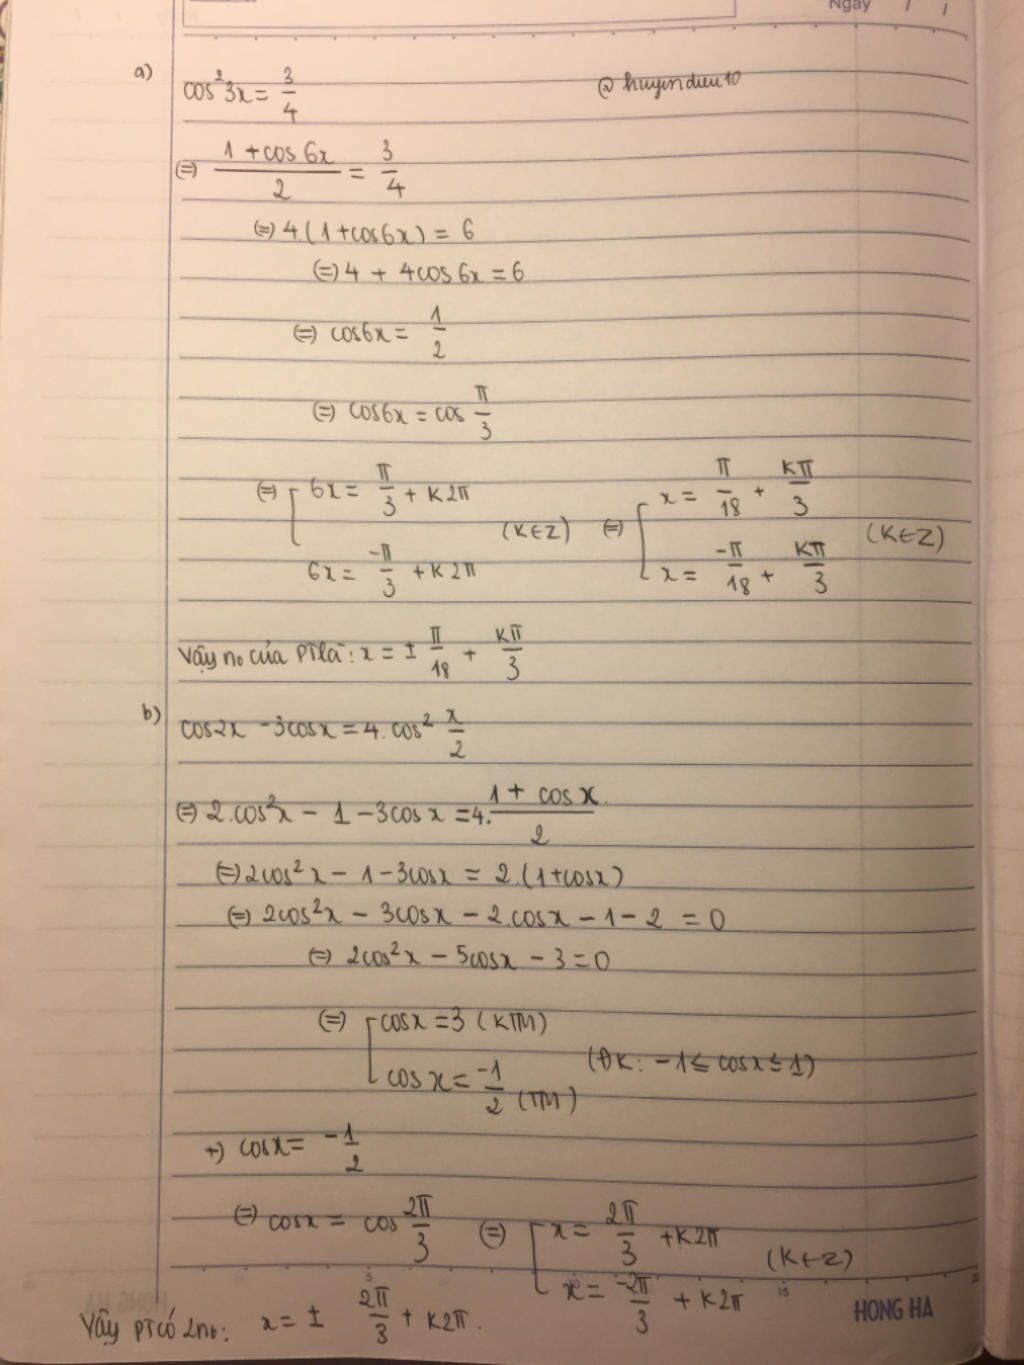 Ngày / /
a)
cos²3x = 3/4 @huyendieu10
(=) (1 + cos6x)/2 = 3/4
(=) 4.(1 + cos6x) = 6
(=) 4 + 4cos6x = 6
(=) cos6x = 1/2
(=) cos6x = cos π/3
(=) [ 6x = π/3 + k2π
6x = -π/3 + k2π (k∈Z) (=) [ x = π/18 + kπ/3
x = -π/18 + kπ/3 (k∈Z)
Vậy no của PT là: x = ± π/18 + kπ/3
b)
cos2x - 3cosx = 4.cos² x/2
(=) 2.cos²x - 1 - 3cosx = 4.(1 + cosx)/2
(=) 2cos²x - 1 - 3cosx = 2.(1+cosx)
(=) 2cos²x - 3cosx - 2.cosx - 1 - 2 = 0
(=) 2cos²x - 5cosx - 3 = 0
(=) [ cosx = 3 (KTM)
cosx = -1/2 (TM) (ĐK: -1 ≤ cosx ≤ 1)
+) cosx = -1/2
(=) cosx = cos 2π/3 (=) [ x = 2π/3 + k2π
x = -2π/3 + k2π (k∈Z)
5 10 15 20
HONG HA
Vậy PT có 2no: x = ± 2π/3 + k2π.